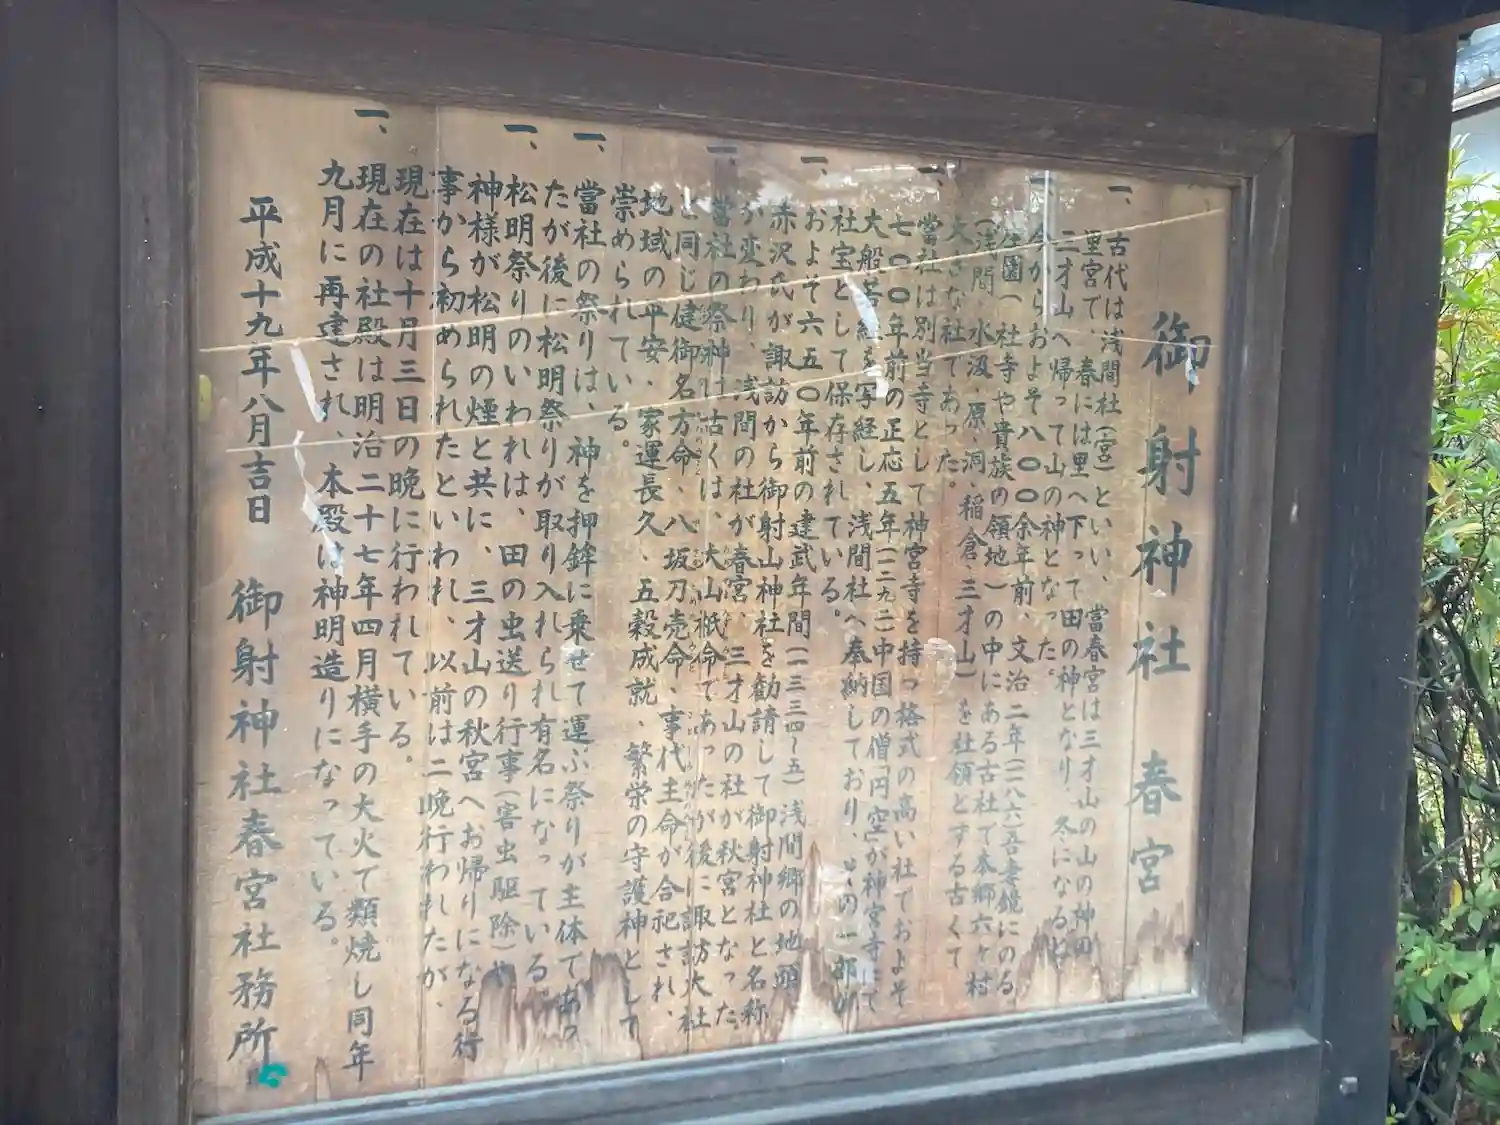 御射神社 春宮
一、古代は浅間社(宮)といい、當春宮は三才山の山の神の
里宮で、春には里へ下って田の神となり、冬になると
三才山へ帰って山の神となった。
一、今からおよそ八〇〇余年前、文治二年(一一八六)吾妻鏡にのる
庄園(社寺や貴族の領地)の中にある古社で本郷六ヶ村
(浅間、水汲、原、洞、稲倉、三才山)を社領とする古くて
大きな社であった。
一、當社は別当寺として神宮寺を持つ格式の高い社でおよそ
七〇〇年前の正応五年(一二九二)中国の僧(円空)が神宮寺にて
大船若経を写経し、浅間社へ奉納しており、その一部が
社宝として保存されている。
一、およそ六五〇年前の建武年間(一三三四~五)浅間郷の地頭
赤沢氏が諏訪から御射山神社を勧請して御射神社と名称
が変わり、浅間の社が春宮、三才山の社が秋宮となった。
一、當社の祭神は古くは、大山祇命であったが後に諏訪大社
と同じ健御名方命、八坂刀売命、事代主命が合祀され、
地域の平安、家運長久、五穀成就、繁栄の守護神として
崇められている。
一、當社の祭りは、神を押鉾に乗せて運ぶ祭りが主体であっ
たが後に松明祭りが取り入れられ有名になっている。
一、松明祭りのいわれは、田の虫送り行事(害虫駆除)や
神様が松明の煙と共に、三才山の秋宮へお帰りになる行
事から初められたといわれ、以前は二晩行われたが、
現在は十月三日の晩に行われている。
一、現在の社殿は明治二十七年四月横手の大火で類焼し同年
九月に再建され、本殿は神明造りになっている。
平成十九年八月吉日 御射神社春宮社務所